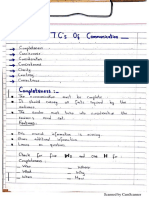 7C's Of Communication
→ Completeness
→ Conciseness
→ Consideration
→ Concreteness
→ Clarity
→ Courtesy
→ Correctness
Completeness :-
The communication must be complete.
It should convey all facts required by the audience.
The sender must take into consideration the receiver's
Features
No crucial information is missing.
Gives additional information
Leaves no question
Check for five Ws and One H for Completeness.
Who
What
When
Where
Why
How
Scanned by CamScanner